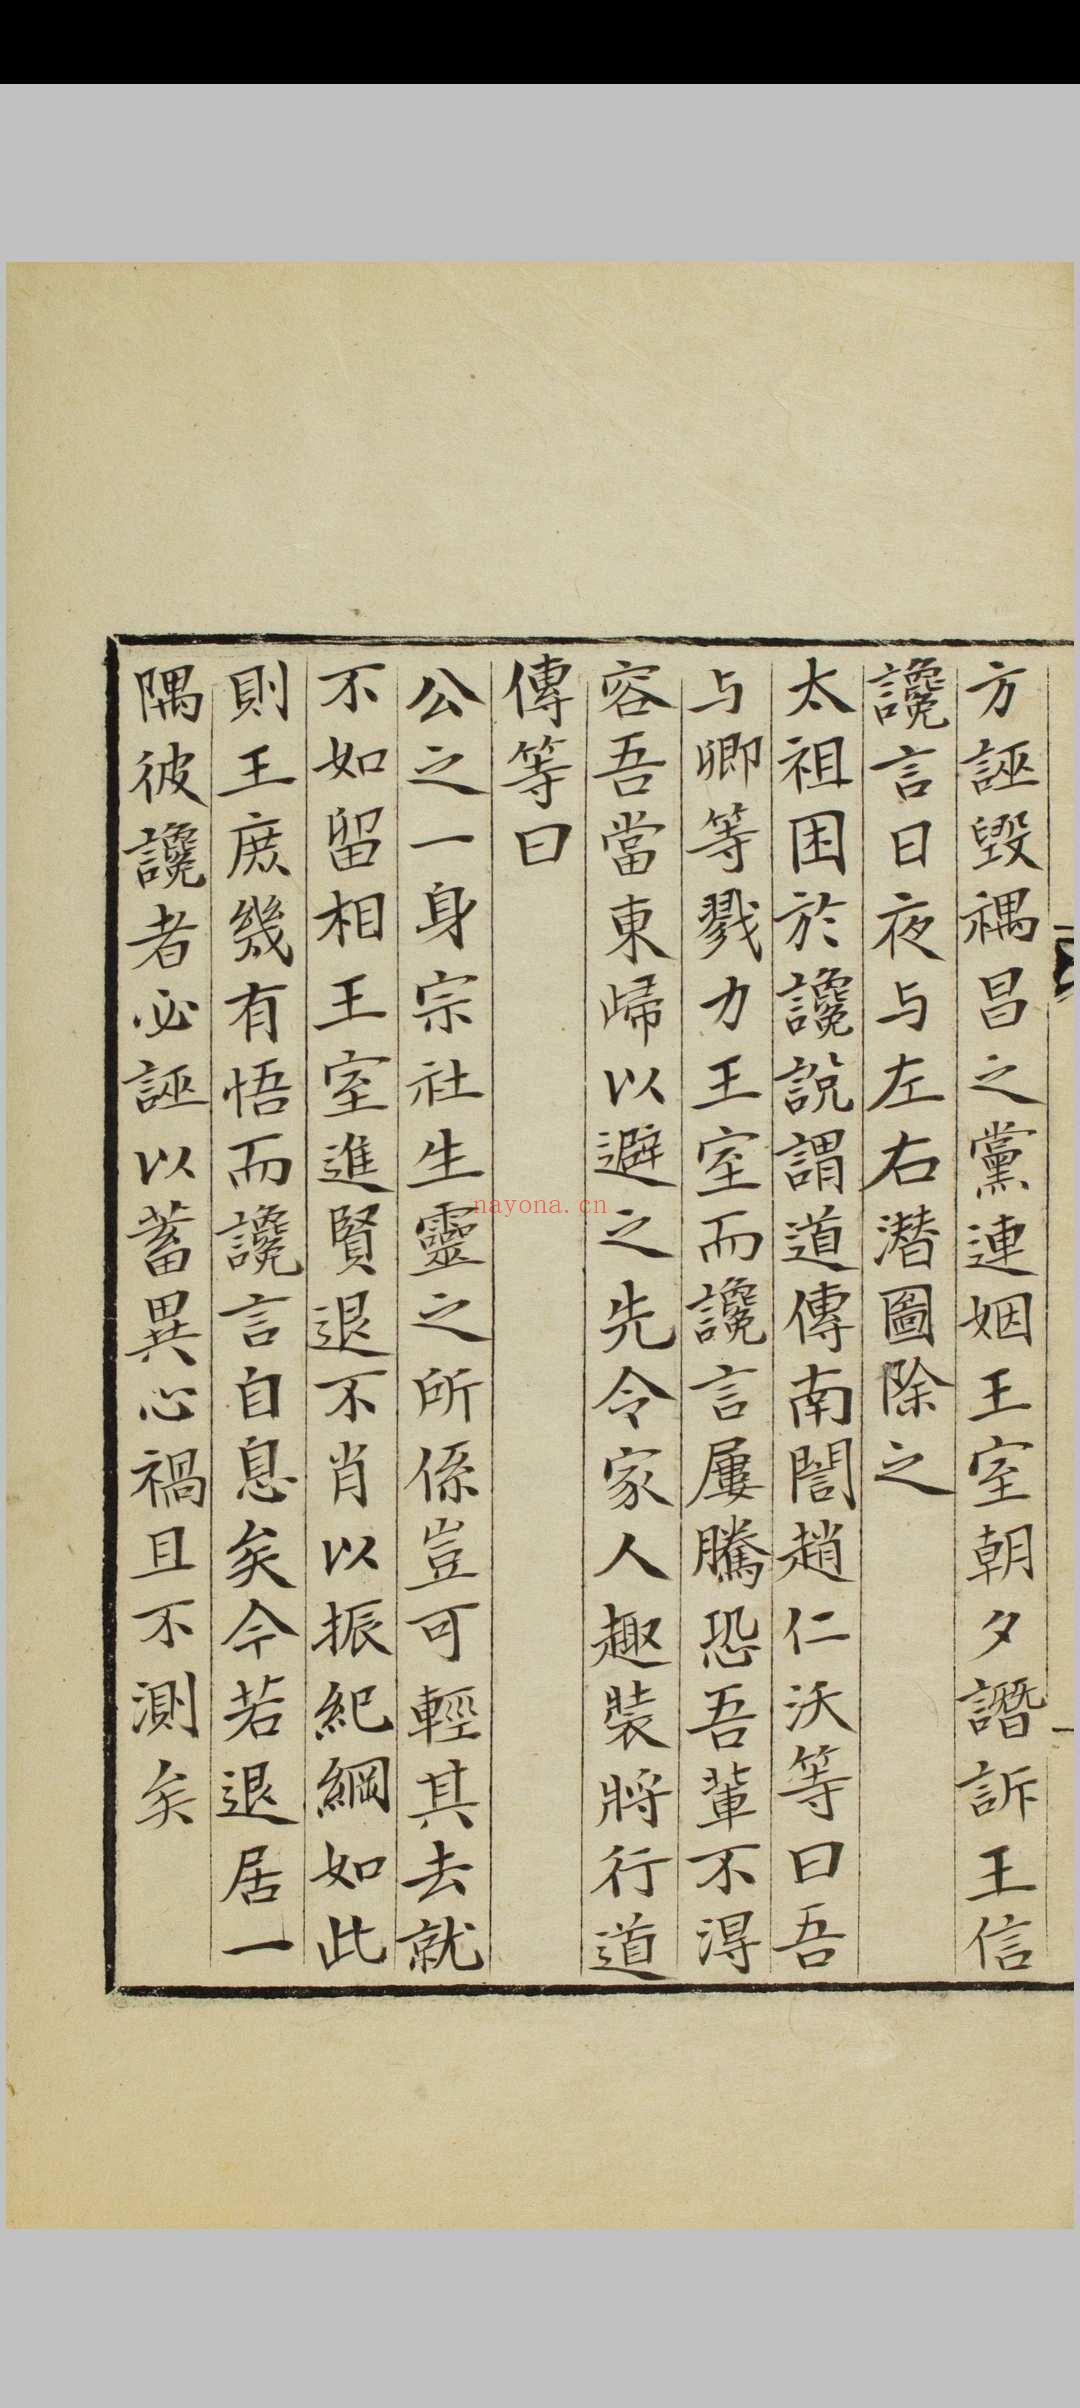 方誣毀禑昌之黨連姻王室朝夕譖訴王信
讒言日夜与左右潛圖除之
太祖困於讒説謂道傳南誾趙仁沃等曰吾
与卿等戮力王室而讒言屢騰恐吾輩不得
容吾當東歸以避之先令家人趣裝將行道
傳等曰
公之一身宗社生靈之所係豈可輕其去就
不如留相王室進賢退不肖以振紀綱如此
則王庶幾有悟而讒言自息矣今若退居一
隅彼讒者必誣以蓄異心禍且不測矣
nayona.cn